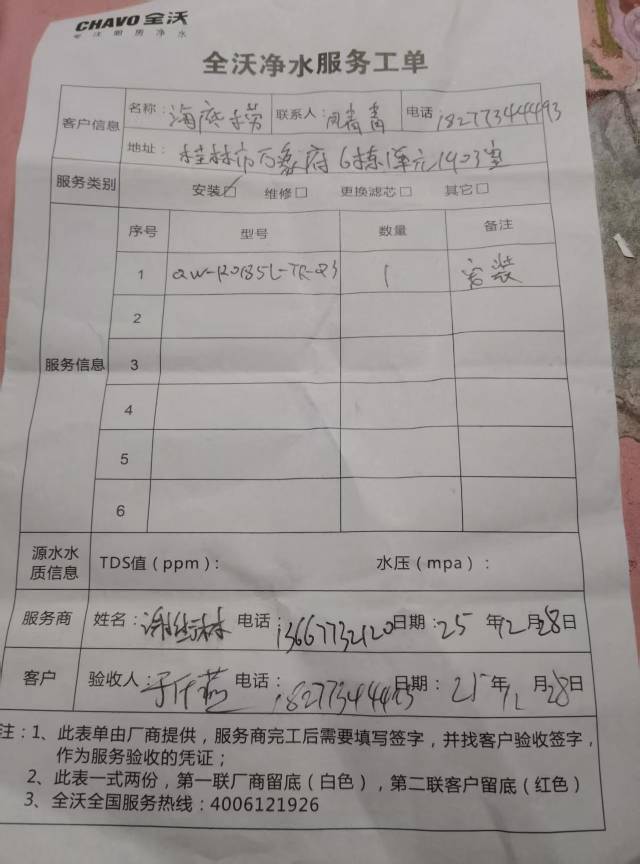 CHAVO 全沃
专注厨房净水
全沃净水服务工单
客户信息 名称：海底捞 联系人：凤青青 电话：18277344493
地址：桂林市万象府6栋1单元1403室
服务类别 安装☑ 维修□ 更换滤芯□ 其它□
服务信息 序号 型号 数量 备注
1 QW-R0185L-TR-Q3 1 安装
2
3
4
5
6
源水水质信息 TDS值（ppm）： 水压（mpa）：
服务商 姓名： 电话：13667732120 日期：25年12月28日
客户 验收人： 电话：18277344493 日期：25年12月28日
注：1、此表单由厂商提供，服务商完工后需要填写签字，并找客户验收签字，
作为服务验收的凭证；
2、此表一式两份，第一联厂商留底（白色），第二联客户留底（红色）
3、全沃全国服务热线：4006121926